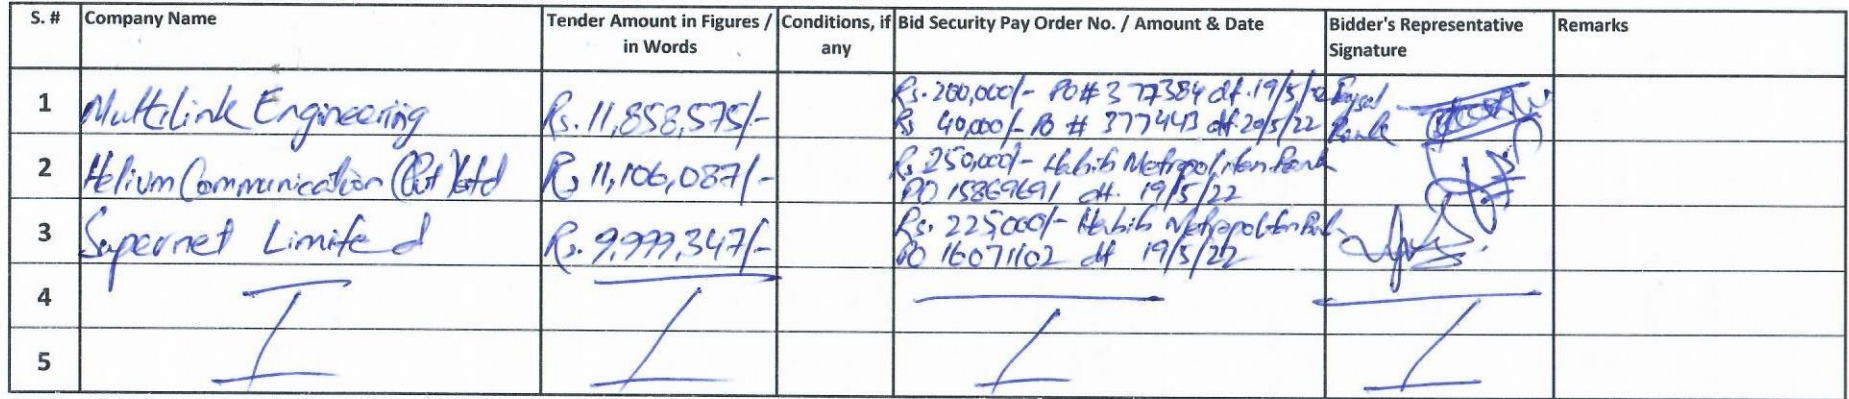 S. # Company Name Tender Amount in Figures / in Words Conditions, if any Bid Security Pay Order No. / Amount & Date Bidder's Representative Signature Remarks
1 Multilink Engineering Rs. 11,858,575/- Rs. 200,000/- PO# 377384 dt. 19/5/22 Faysal
Rs 40,000/- PO # 377443 dt 20/5/22 Bank
2 Helium Communication (Pvt) Ltd Rs 11,106,087/- Rs 250,000/- Habib Metropolitan Bank
PO 15869691 dt. 19/5/22
3 Supernet Limited Rs. 9,999,347/- Rs. 225,000/- Habib Metropolitan Bank
PO 16071102 dt 19/5/22
4
5